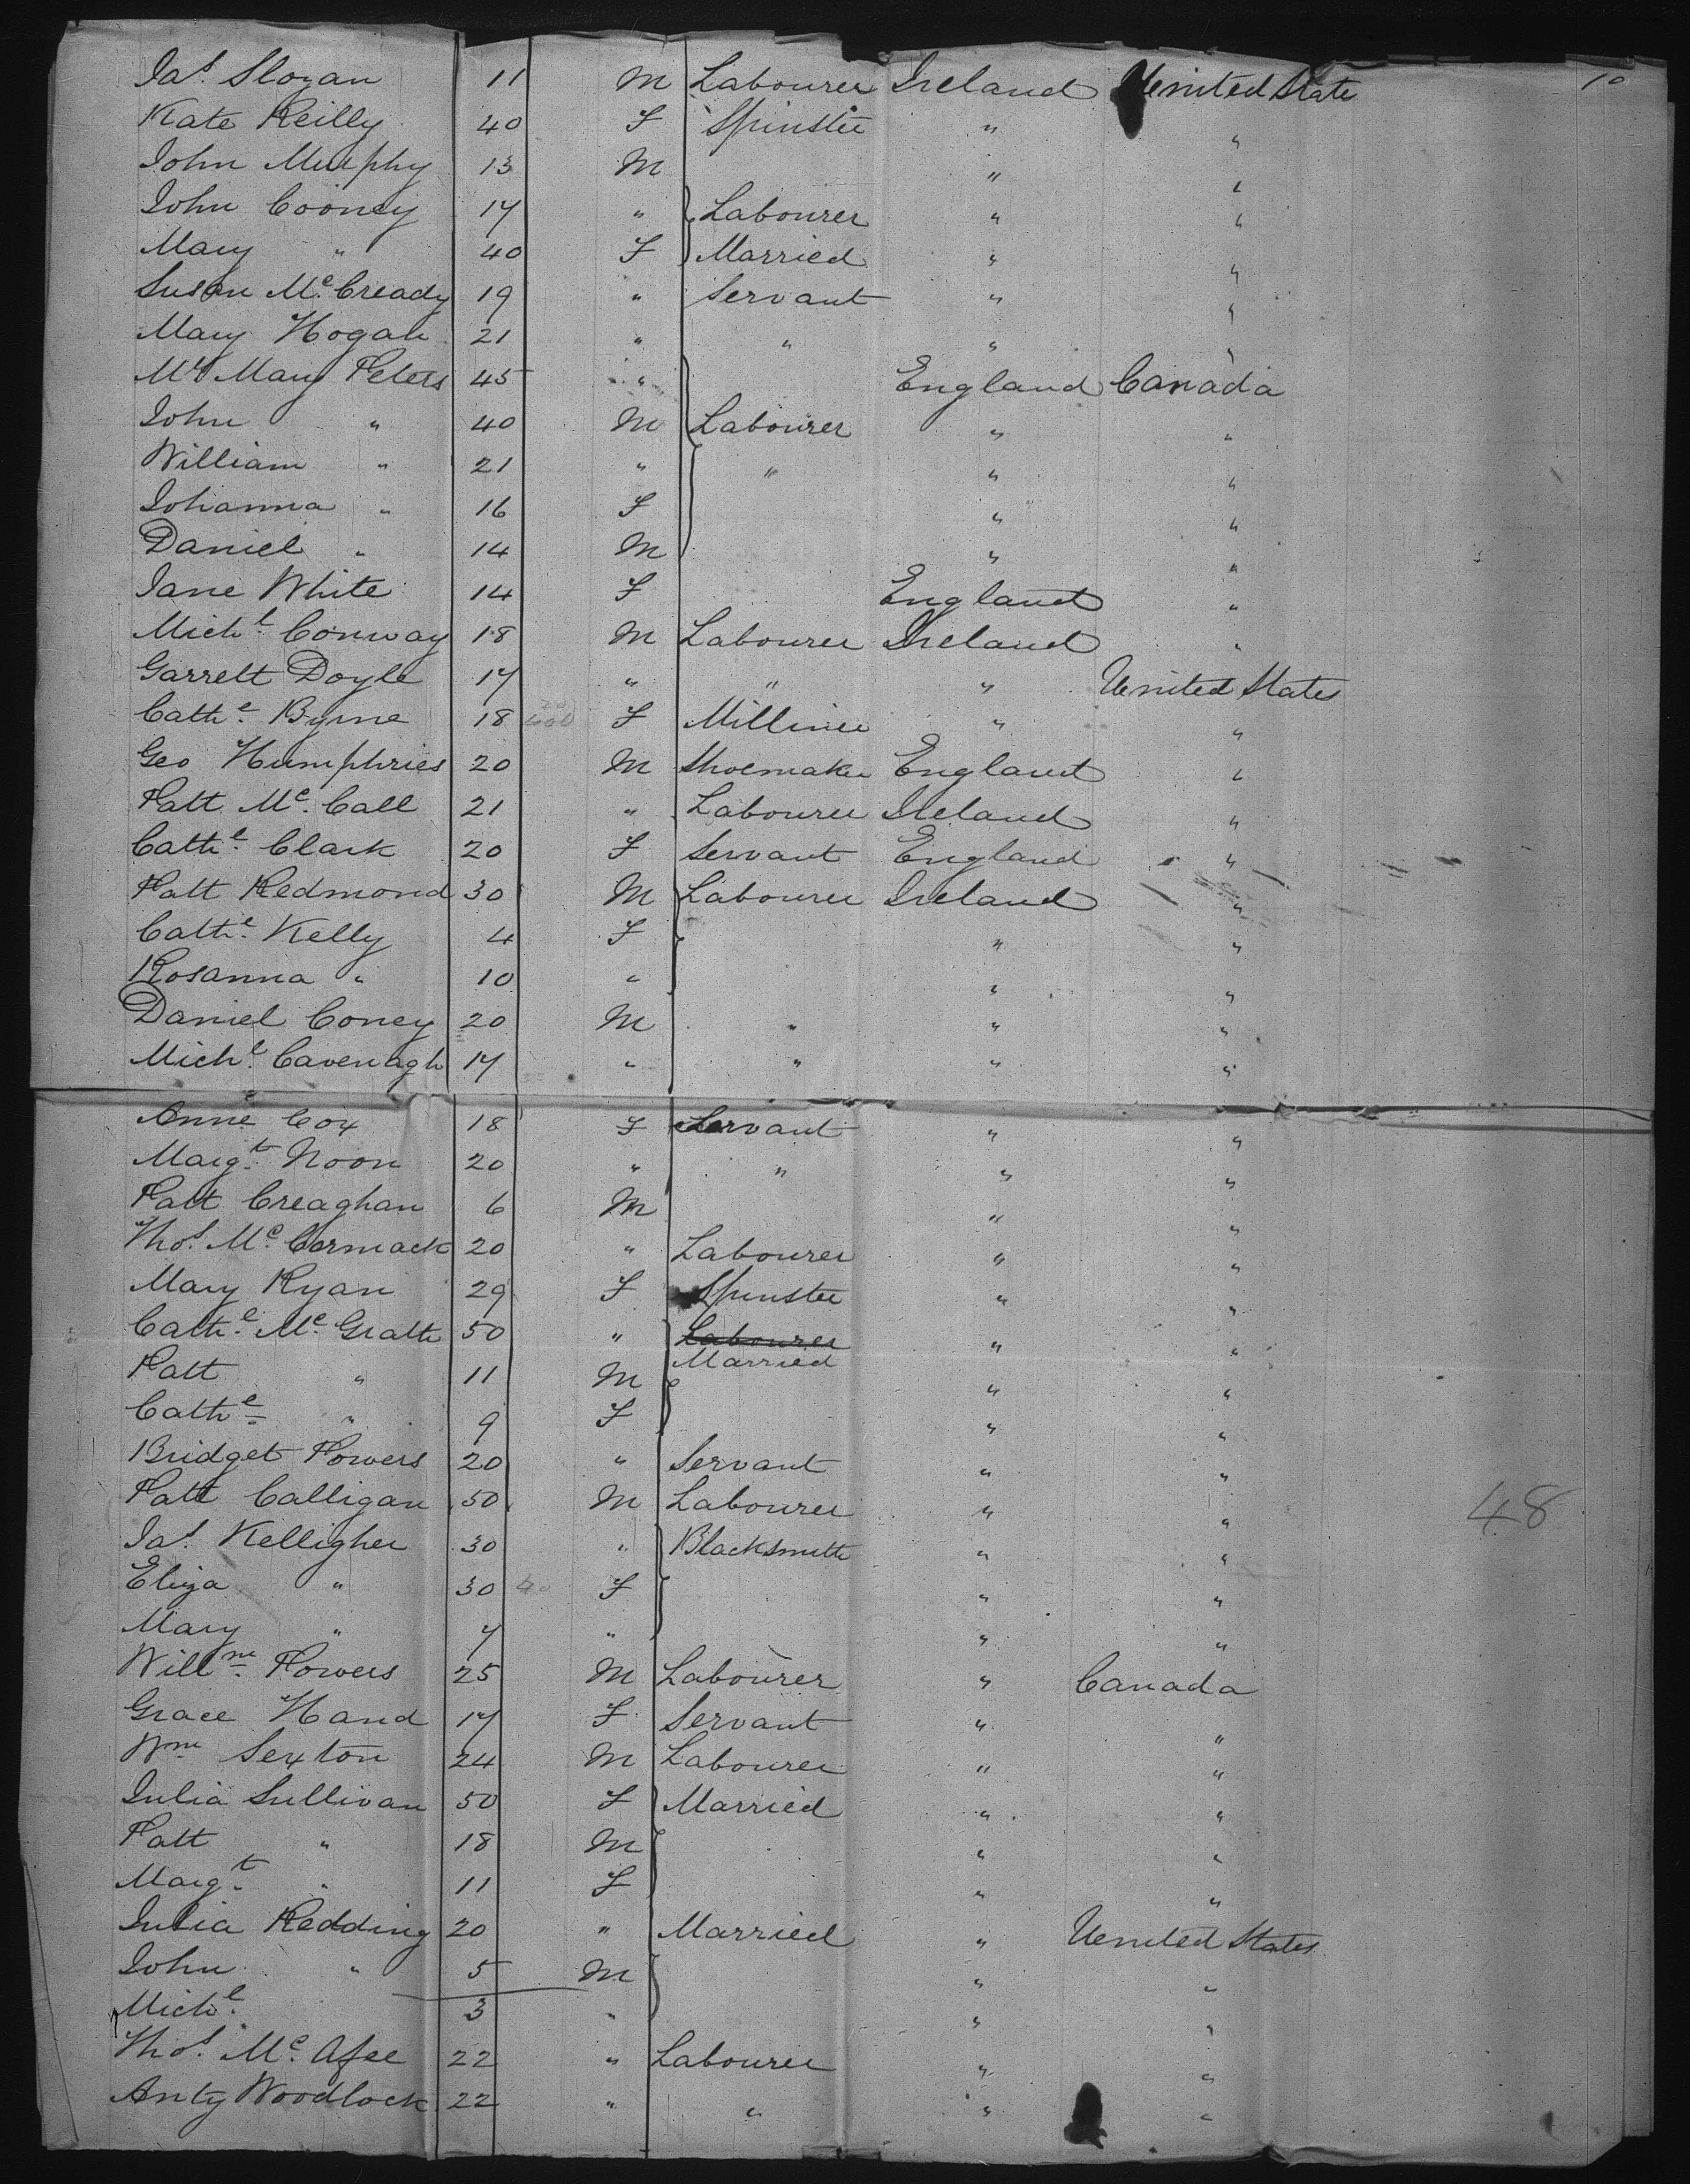 10
Jas. Slogan 11 M Labourer Ireland United State
Kate Reilly 40 F Spinster " "
John Murphy 13 M " "
John Cooney 17 " Labourer " "
Mary " 40 F Married " "
Susan Mc. Cready 19 " Servant " "
Mary Hogan 21 " " " "
Mrs Mary Peters 45 " England Canada
John " 40 M Labourer " "
William " 21 " " " "
Johanna " 16 F " "
Daniel " 14 M " "
Jane White 14 F England "
Michl. Conway 18 M Labourer Ireland "
Garrett Doyle 17 " " " United States
Cathe. Byrne 18 F Milliner " "
Geo Humphries 20 M Shoemaker England "
Patt Mc. Call 21 " Labourer Ireland "
Cathe. Clark 20 F Servant England "
Patt Redmond 30 M Labourer Ireland "
Cathe. Kelly 4 F " "
Rosanna " 10 " " "
Daniel Coney 20 M " " "
Michl. Cavenagh 17 " " " "
Anne Cox 18 F Servant " "
Margt. Noon 20 " " " "
Patt Creaghan 6 M " "
Thos. Mc. Cormack 20 " Labourer " "
Mary Ryan 29 F Spinster " "
Cathe. Mc. Grath 50 " Labourer " "
Married
Patt " 11 M " "
Cathe. " 9 F " "
Bridget Powers 20 " Servant " "
Patt Calligan 50 M Labourer " "
48
Jas. Kelligher 30 " Blacksmith " "
Eliza " 30 F " "
Mary " 7 " " "
Willm. Powers 25 M Labourer " Canada
Grace Hand 17 F Servant " "
Wm Sexton 24 M Labourer " "
Julia Sullivan 50 F Married " "
Patt " 18 M " "
Margt. " 11 F " "
Julia Redding 20 " Married " United States
John " 5 M " "
Michl. " 3 " " "
Thos. Mc. Afee 22 " Labourer " "
Anty Woodlock 22 " " " "